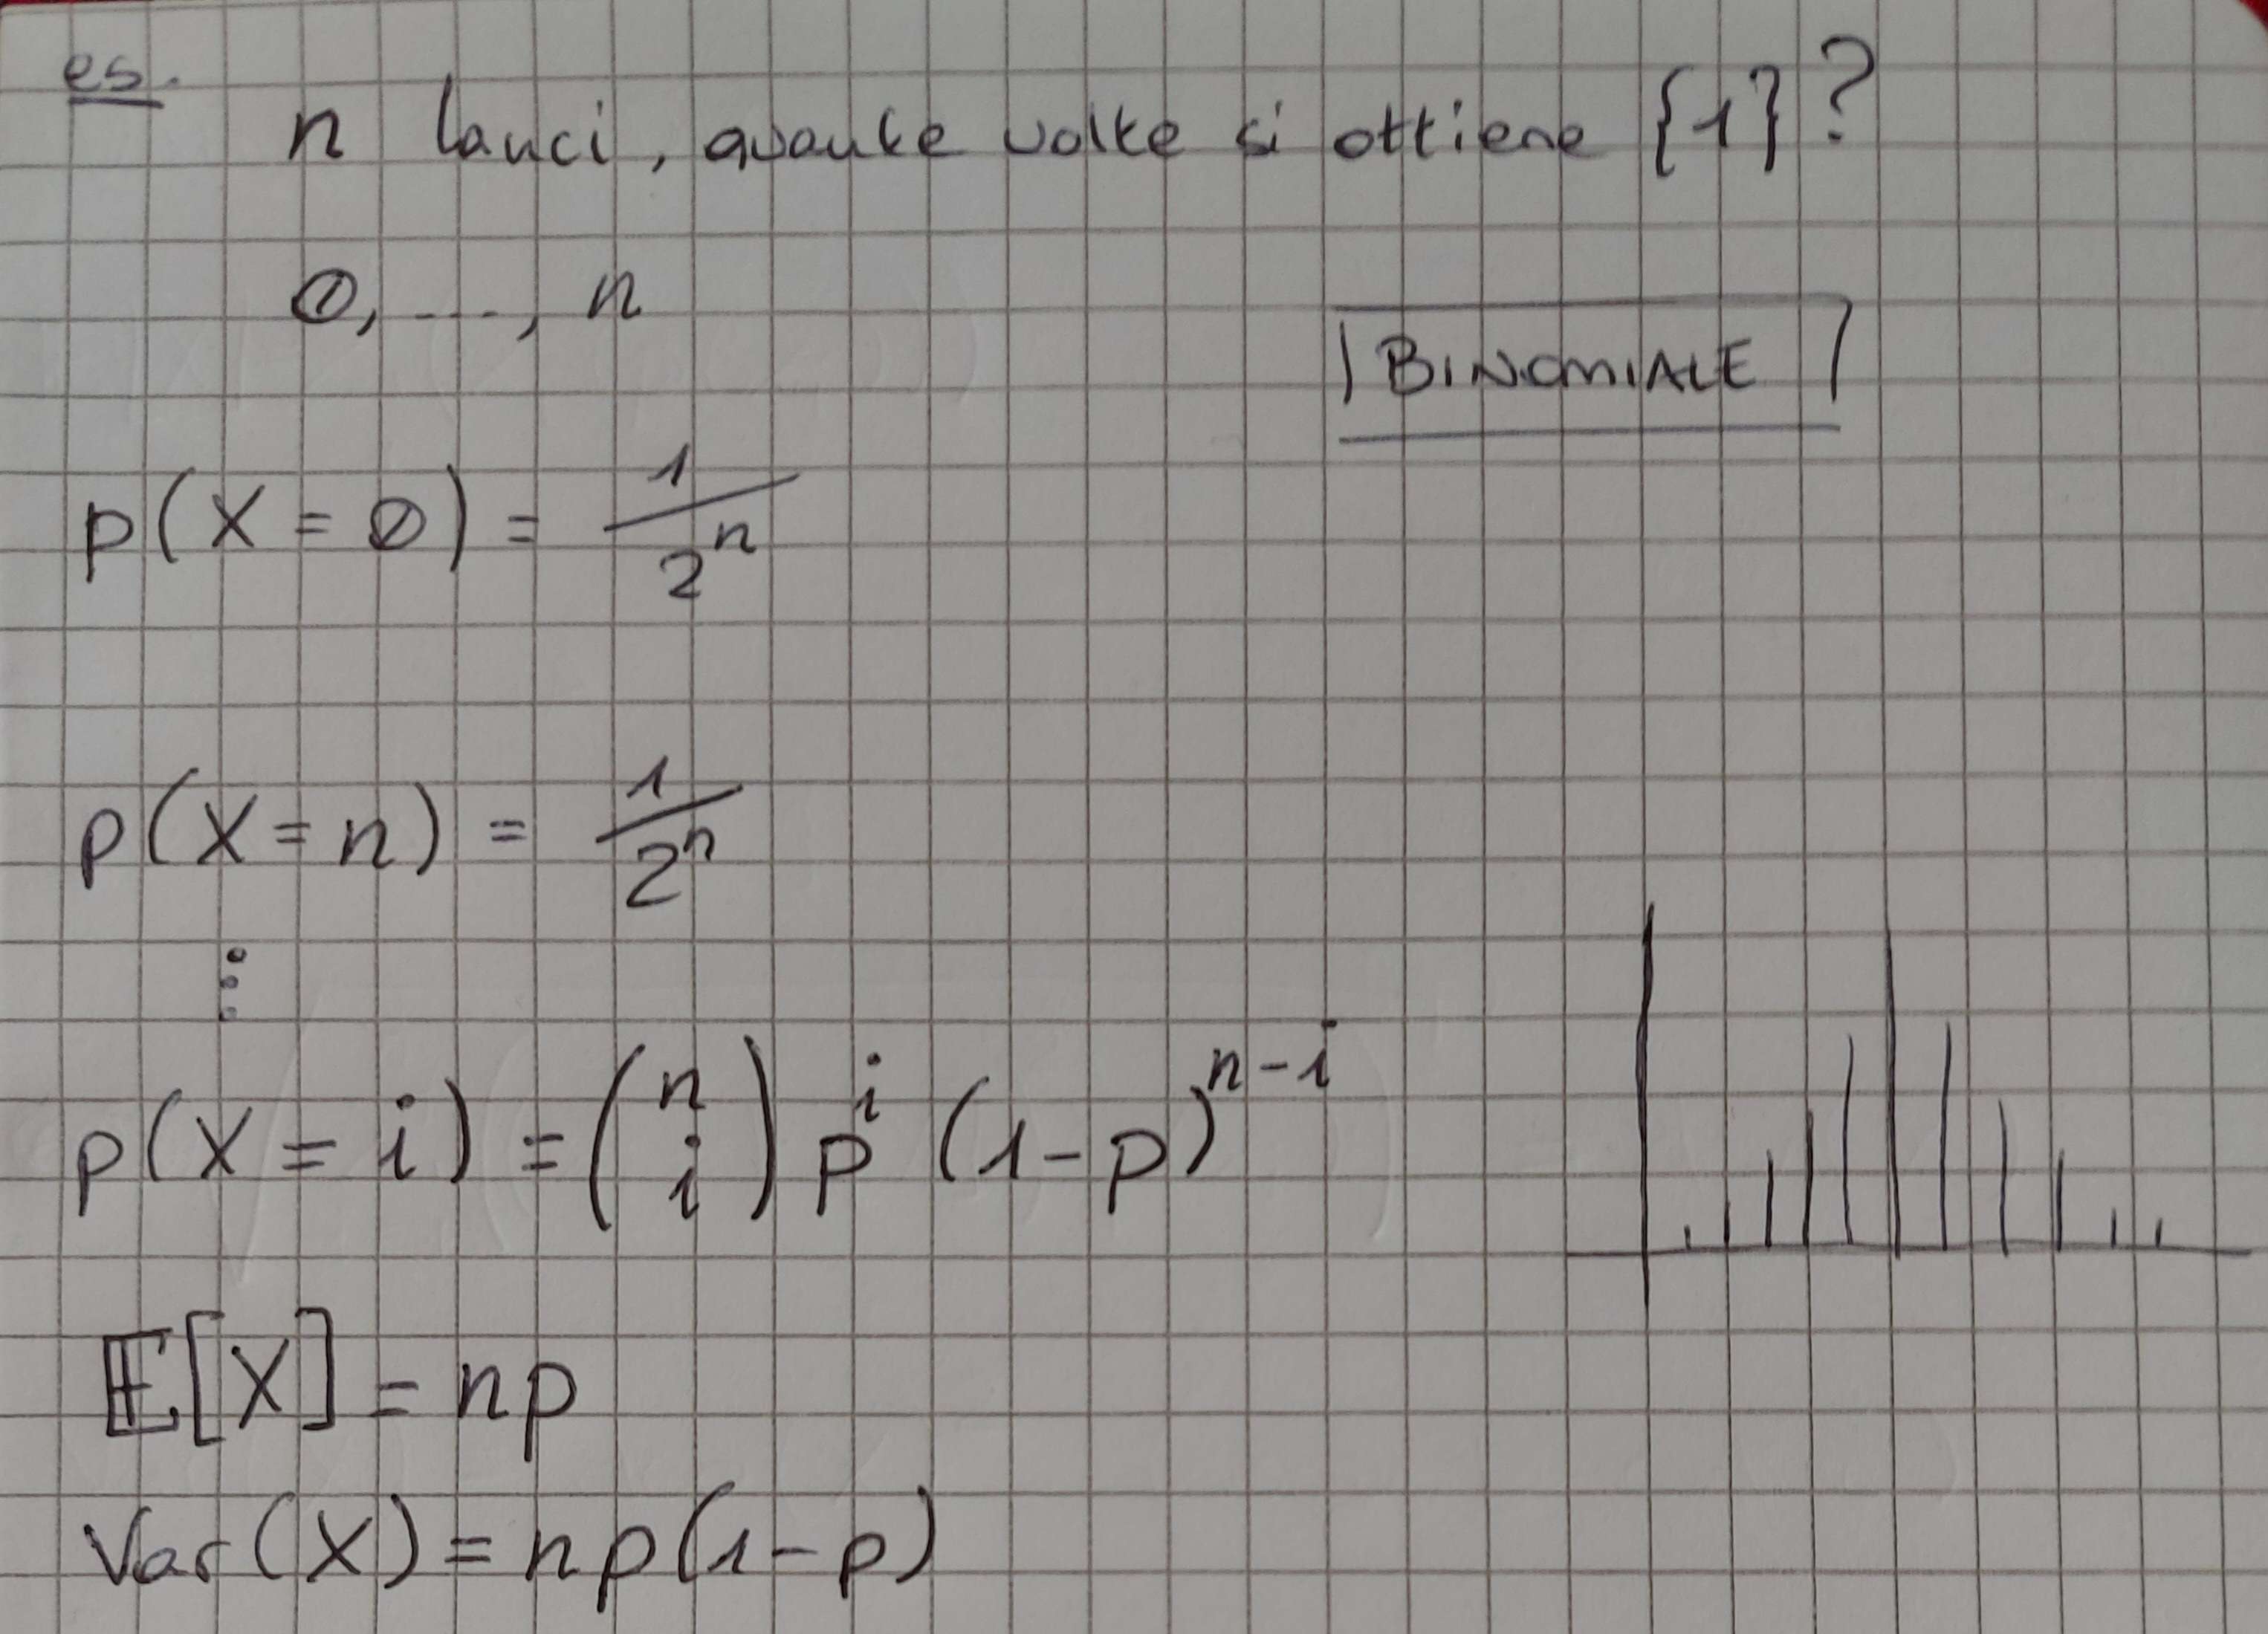 es.
n lanci, quante volte si ottiene {1}?
0, ..., n
BINOMIALE
p(X = 0) = 1/2^n
p(X = n) = 1/2^n
⋮
p(X = i) = (n i) p^i (1-p)^{n-i}
𝔼[X] = np
Var(X) = np(1-p)